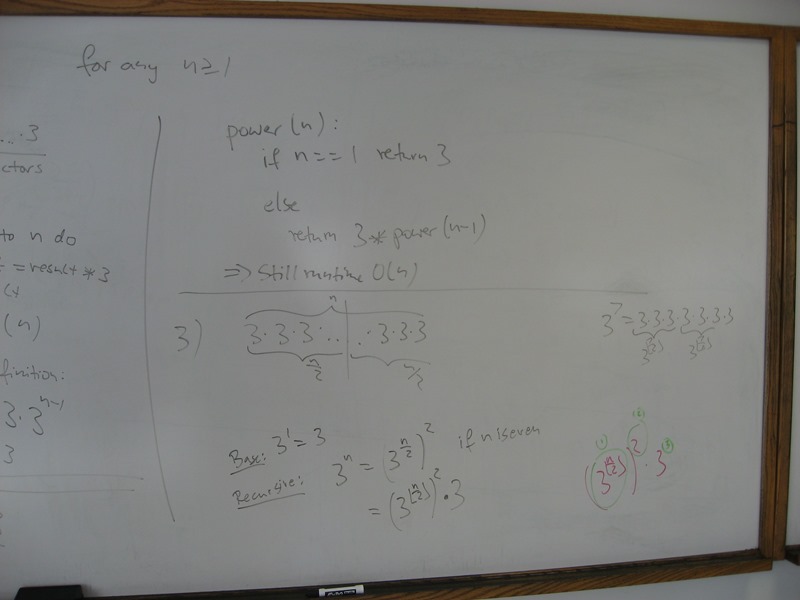 for any n ≥ 1
... · 3
ctors
to n do
= result * 3
(n)
finition:
3 · 3^{n-1}
3
power(n):
if n == 1 return 3
else
return 3 * power(n-1)
=> Still runtime O(n)
n
3) 3 · 3 · 3 · .. | . · 3 · 3 · 3
n/2 n/2
3^7 = 3·3·3·3·3·3·3
3^{⌊7/2⌋} 3^{⌊7/2⌋}
Base: 3^1 = 3
Recursive: 3^n = (3^{n/2})^2 if n is even
= (3^{⌊n/2⌋})^2 · 3
(1) (2) (3)
(3^{⌊n/2⌋})^2 · 3